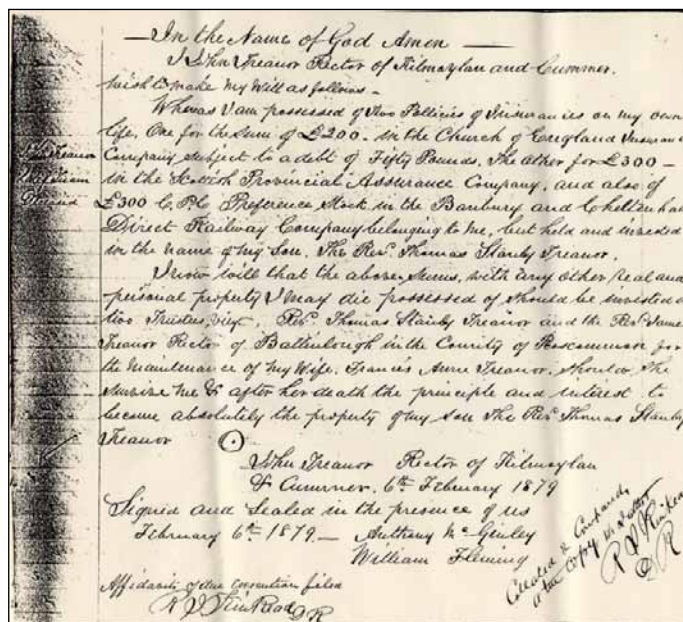 — In the Name of God Amen —
I John Treanor Rector of Kilmoylan and Cummer.
wish to make my Will as follows –
Whereas I am possessed of two Pollicies of Insurances on my own
life, One for the Sum of £200 – in the Church of England Insurance
Company subject to a debt of Fifty Pounds, The other for £300 –
in the Scottish Provincial Assurance Company, and also of
£300 6. P.C. Preference Stock in the Banbury and Cheltenham
Direct Railway Company belonging to me, but held and invested
in the name of my Son, The Revd. Thomas Stanby Treanor.
I now will that the above Sums, with any other real and
personal property I may die possessed of should be invested in
two Trustees, viz, Revd. Thomas Stanby Treanor and the Revd. James
Treanor Rector of in the County of Roscommon for
the Maintainance of my Wife, Francis Anne Treanor, should she
survive me & after her death the principle and interest to
become absolutely the property of my son The Revd. Thomas Stanby
Treanor
John Treanor Rector of Kilmoylan
& Cummer. 6th February 1879
Signed and Sealed in the presence of us
February 6th 1879 – Anthony McGinley
William Fleming
Affidavit of due execution filed
R J Kinkead DR
John Treanor
Deceased
Collated & Compared
a true Copy
R J Kinkead
DR